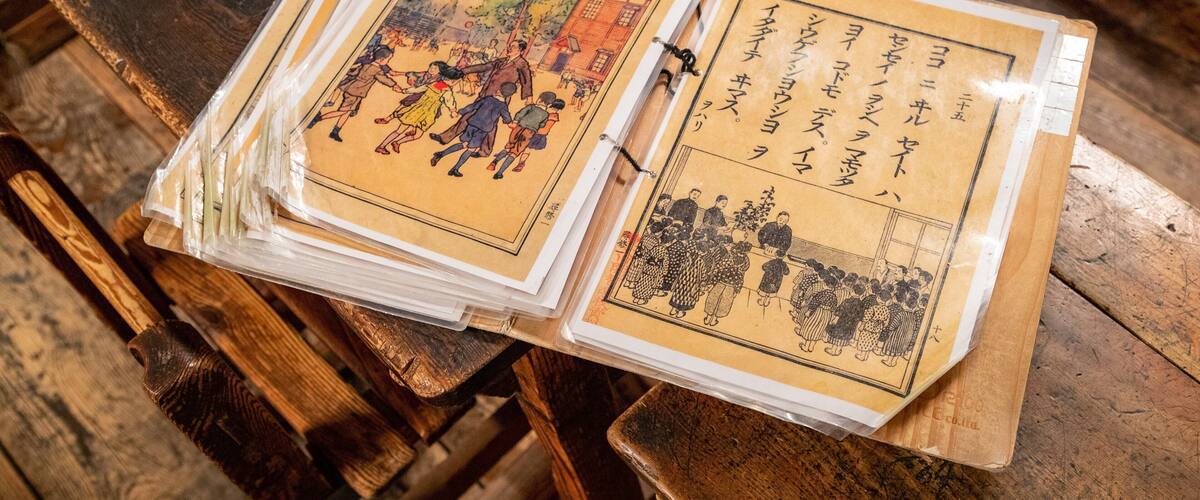 二十五
ココ ニ ヰル セイト ハ
センセイノ ヲシヘ ヲ マモッタ
ヨイ コドモ デス。イマ
シウゲフシヨウシヨ ヲ
イタダイテ ヰマス。
ヲハリ
十八
CE co.,ltd.